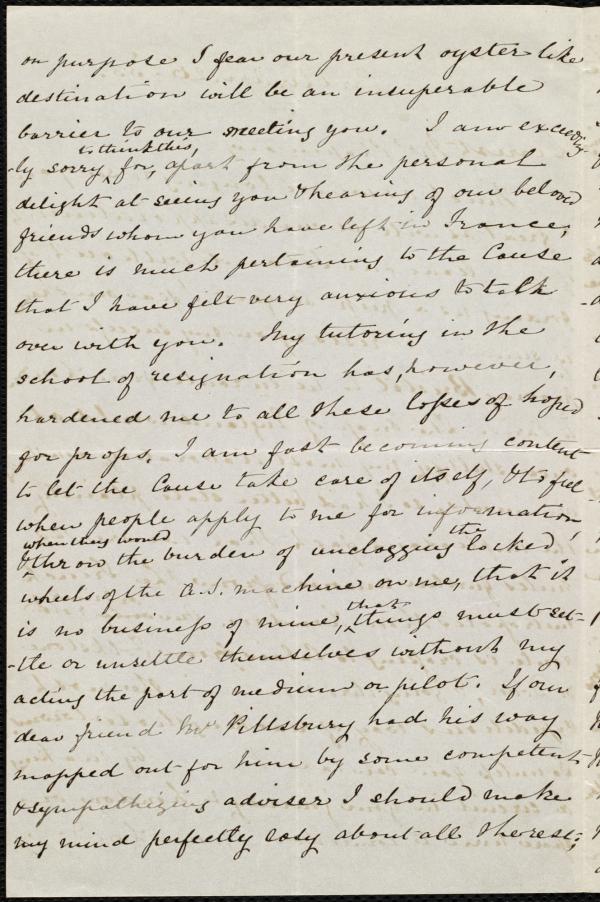 on purpose I fear our present oyster like
destination will be an insuperable
barrier to our meeting you. I am exceeding
to think this,
-ly sorry, for, apart from the personal
delight at seeing you & hearing of our beloved
friends whom you have left in France,
there is much pertaining to the Cause
that I have felt very anxious to talk
over with you. My tutoring in the
school of resignation has, however,
hardened me to all these losses of hoped
for props. I am fast becoming content
to let the Cause take care of itself, & to feel
when people apply to me for information,
when they would the
& throw the burden of unclogging locked
wheels of the A.S. machine on me, that it
that
is no business of mine, things must set-
-tle or unsettle themselves without my
acting the part of medium or pilot. If our
dear friend Mr Pillsbury had his way
mapped out for him by some competent
& sympathizing adviser I should make
my mind perfectly easy about all the rest;